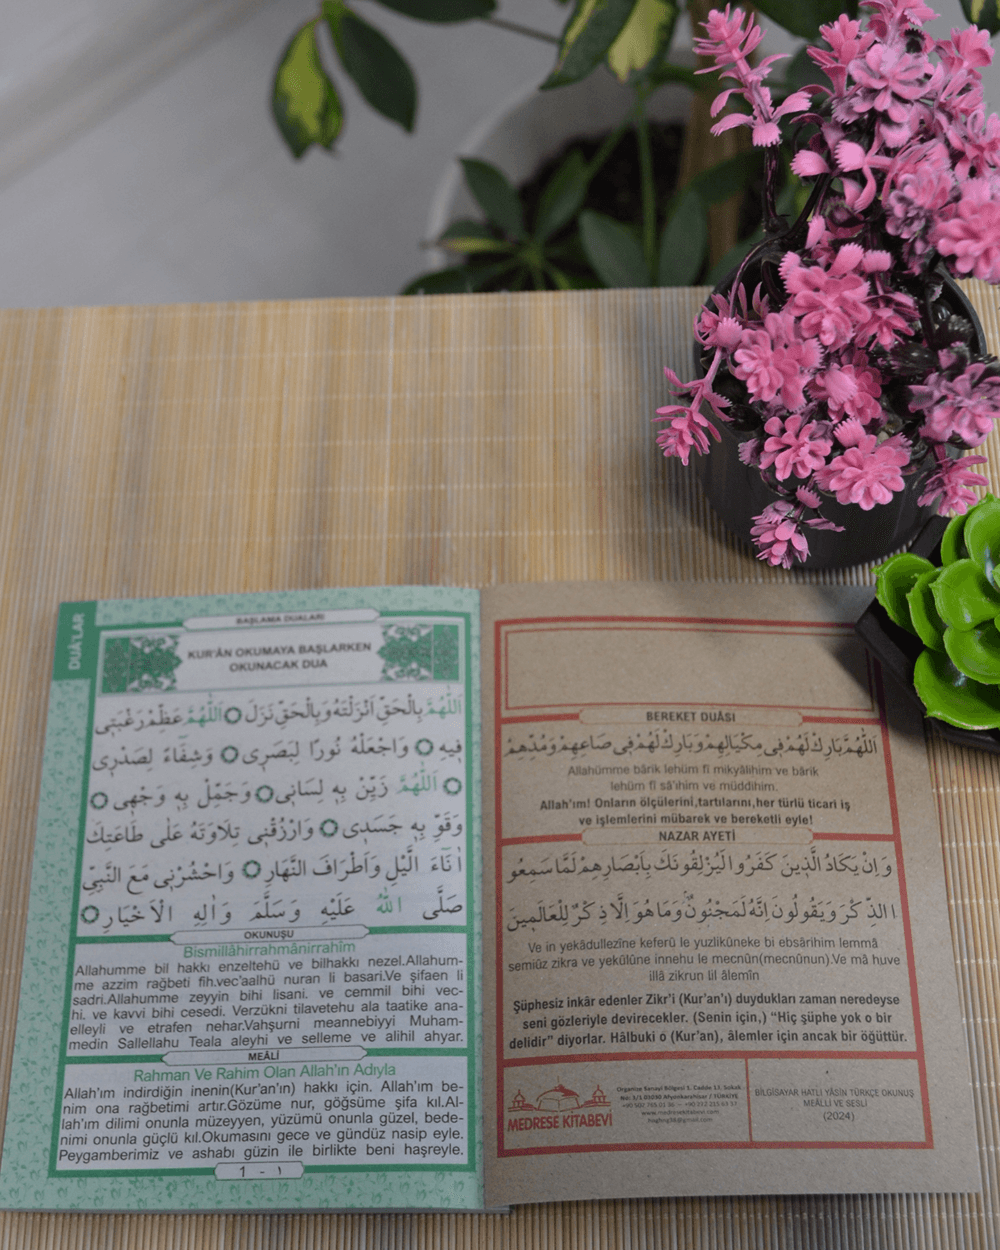 DUÂLAR
BAŞLAMA DUALARI
KUR'ÂN OKUMAYA BAŞLARKEN
OKUNACAK DUA
اَللّٰهُمَّ بِالْحَقِّ اَنْزَلْتَهُ وَبِالْحَقِّ نَزَلَ اَللّٰهُمَّ عَظِّمْ رَغْبَتِى
فِيهِ وَاجْعَلْهُ نُورًا لِبَصَرِى وَشِفَاءً لِصَدْرِى
اَللّٰهُمَّ زَيِّنْ بِهِ لِسَانِى وَجَمِّلْ بِهِ وَجْهِى
وَقَوِّ بِهِ جَسَدِى وَارْزُقْنِى تِلَاوَتَهُ عَلٰى طَاعَتِكَ
اٰنَاءَ الَّيْلِ وَاَطْرَافَ النَّهَارِ وَاحْشُرْنِى مَعَ النَّبِيِّ
صَلَّى اللّٰهُ عَلَيْهِ وَسَلَّمَ وَاٰلِهِ الْاَخْيَارِ
OKUNUŞU
Bismillâhirrahmânirrahîm
Allahumme bil hakkı enzeltehü ve bilhakkı nezel.Allahum-
me azzim rağbeti fih.vec'aalhü nuran li basari.Ve şifaen li
sadri.Allahumme zeyyin bihi lisani. ve cemmil bihi vec-
hi. ve kavvi bihi cesedi. Verzükni tilavetehu ala taatike ana-
elleyli ve etrafen nehar.Vahşurni meannebiyyi Muham-
medin Sallellahu Teala aleyhi ve selleme ve alihil ahyar.
MEÂLİ
Rahman Ve Rahim Olan Allah'ın Adıyla
Allah'ım indirdiğin inenin(Kur'an'ın) hakkı için. Allah'ım be-
nim ona rağbetimi artır.Gözüme nur, göğsüme şifa kıl.Al-
lah'ım dilimi onunla müzeyyen, yüzümü onunla güzel, bede-
nimi onunla güçlü kıl.Okumasını gece ve gündüz nasip eyle.
Peygamberimiz ve ashabı güzin ile birlikte beni haşreyle.
1 - ١
BEREKET DUÂSI
اَللّٰهُمَّ بَارِكْ لَهُمْ فِى مِكْيَالِهِمْ وَبَارِكْ لَهُمْ فِى صَاعِهِمْ وَمُدِّهِمْ
Allahümme bârik lehüm fî mikyâlihim ve bârik
lehüm fî sâ'ihim ve müddihim.
Allah'ım! Onların ölçülerini,tartılarını,her türlü ticari iş
ve işlemlerini mübarek ve bereketli eyle!
NAZAR AYETİ
وَاِنْ يَكَادُ الَّذِينَ كَفَرُوا لَيُزْلِقُونَكَ بِاَبْصَارِهِمْ لَمَّا سَمِعُو
ا الذِّكْرَ وَيَقُولُونَ اِنَّهُ لَمَجْنُونٌ وَمَا هُوَ اِلَّا ذِكْرٌ لِلْعَالَمِينَ
Ve in yekâdullezîne keferû le yuzlikûneke bi ebsârihim lemmâ
semiûz zikra ve yekûlûne innehu le mecnûn(mecnûnun).Ve mâ huve
illâ zikrun lil âlemîn
Şüphesiz inkâr edenler Zikr'i (Kur'an'ı) duydukları zaman neredeyse
seni gözleriyle devirecekler. (Senin için,) "Hiç şüphe yok o bir
delidir" diyorlar. Hâlbuki o (Kur'an), âlemler için ancak bir öğüttür.
MEDRESE KİTABEVİ
Organize Sanayi Bölgesi 1. Cadde 13. Sokak
No: 1/1 03030 Afyonkarahisar / TÜRKİYE
www.medresekitabevi.com
BİLGİSAYAR HATLI YÂSİN TÜRKÇE OKUNUŞ
MEÂLLİ VE SESLİ
(2024)